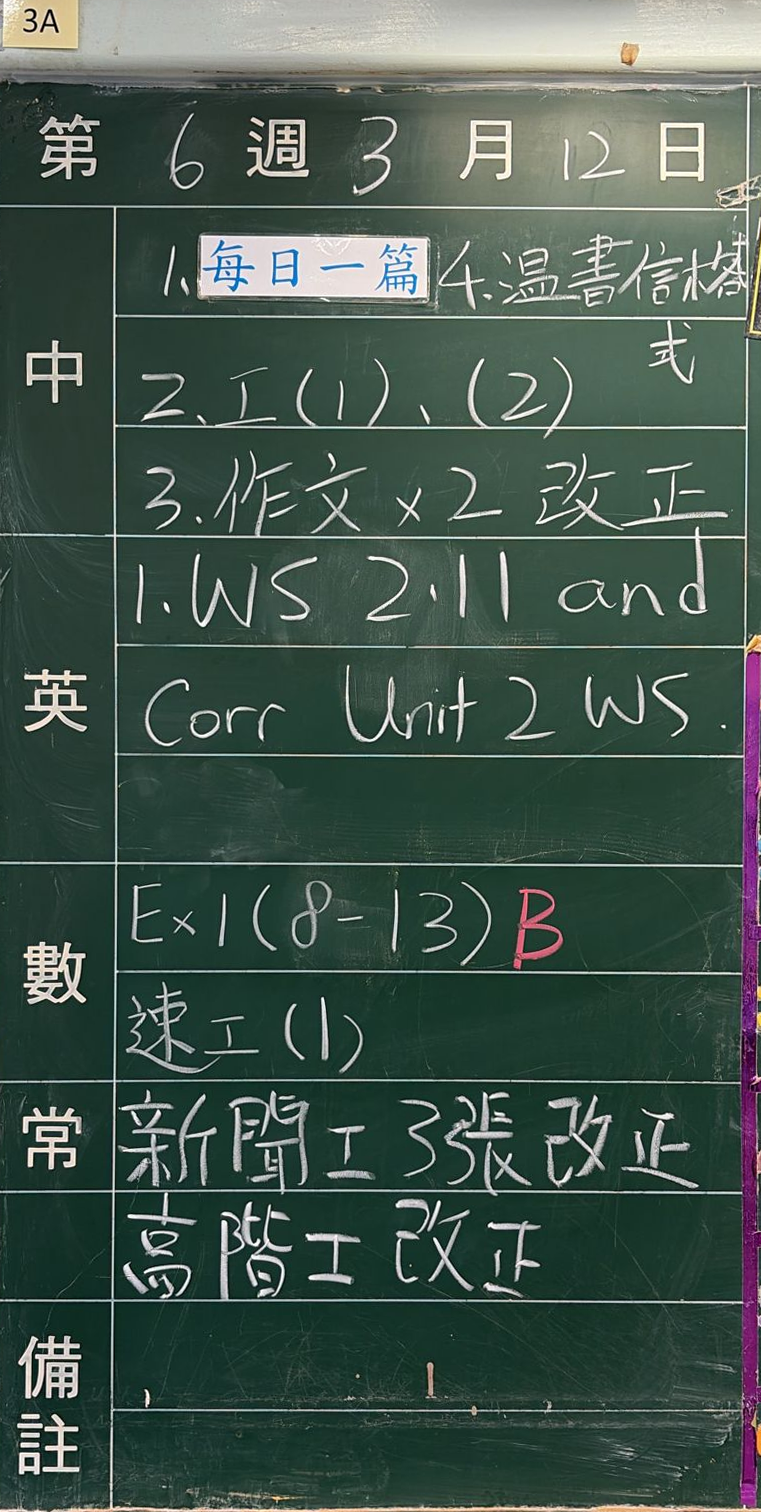 3A
第 6 週 3 月 12 日
中
1. 每日一篇 4. 温書信格
式
2. 工(1)、(2)
3. 作文x2 改正
英
1. WS 2.11 and
Corr Unit 2 WS.
數
Ex1(8-13) B
速工(1)
常
新聞工3張改正
高階工改正
備
註